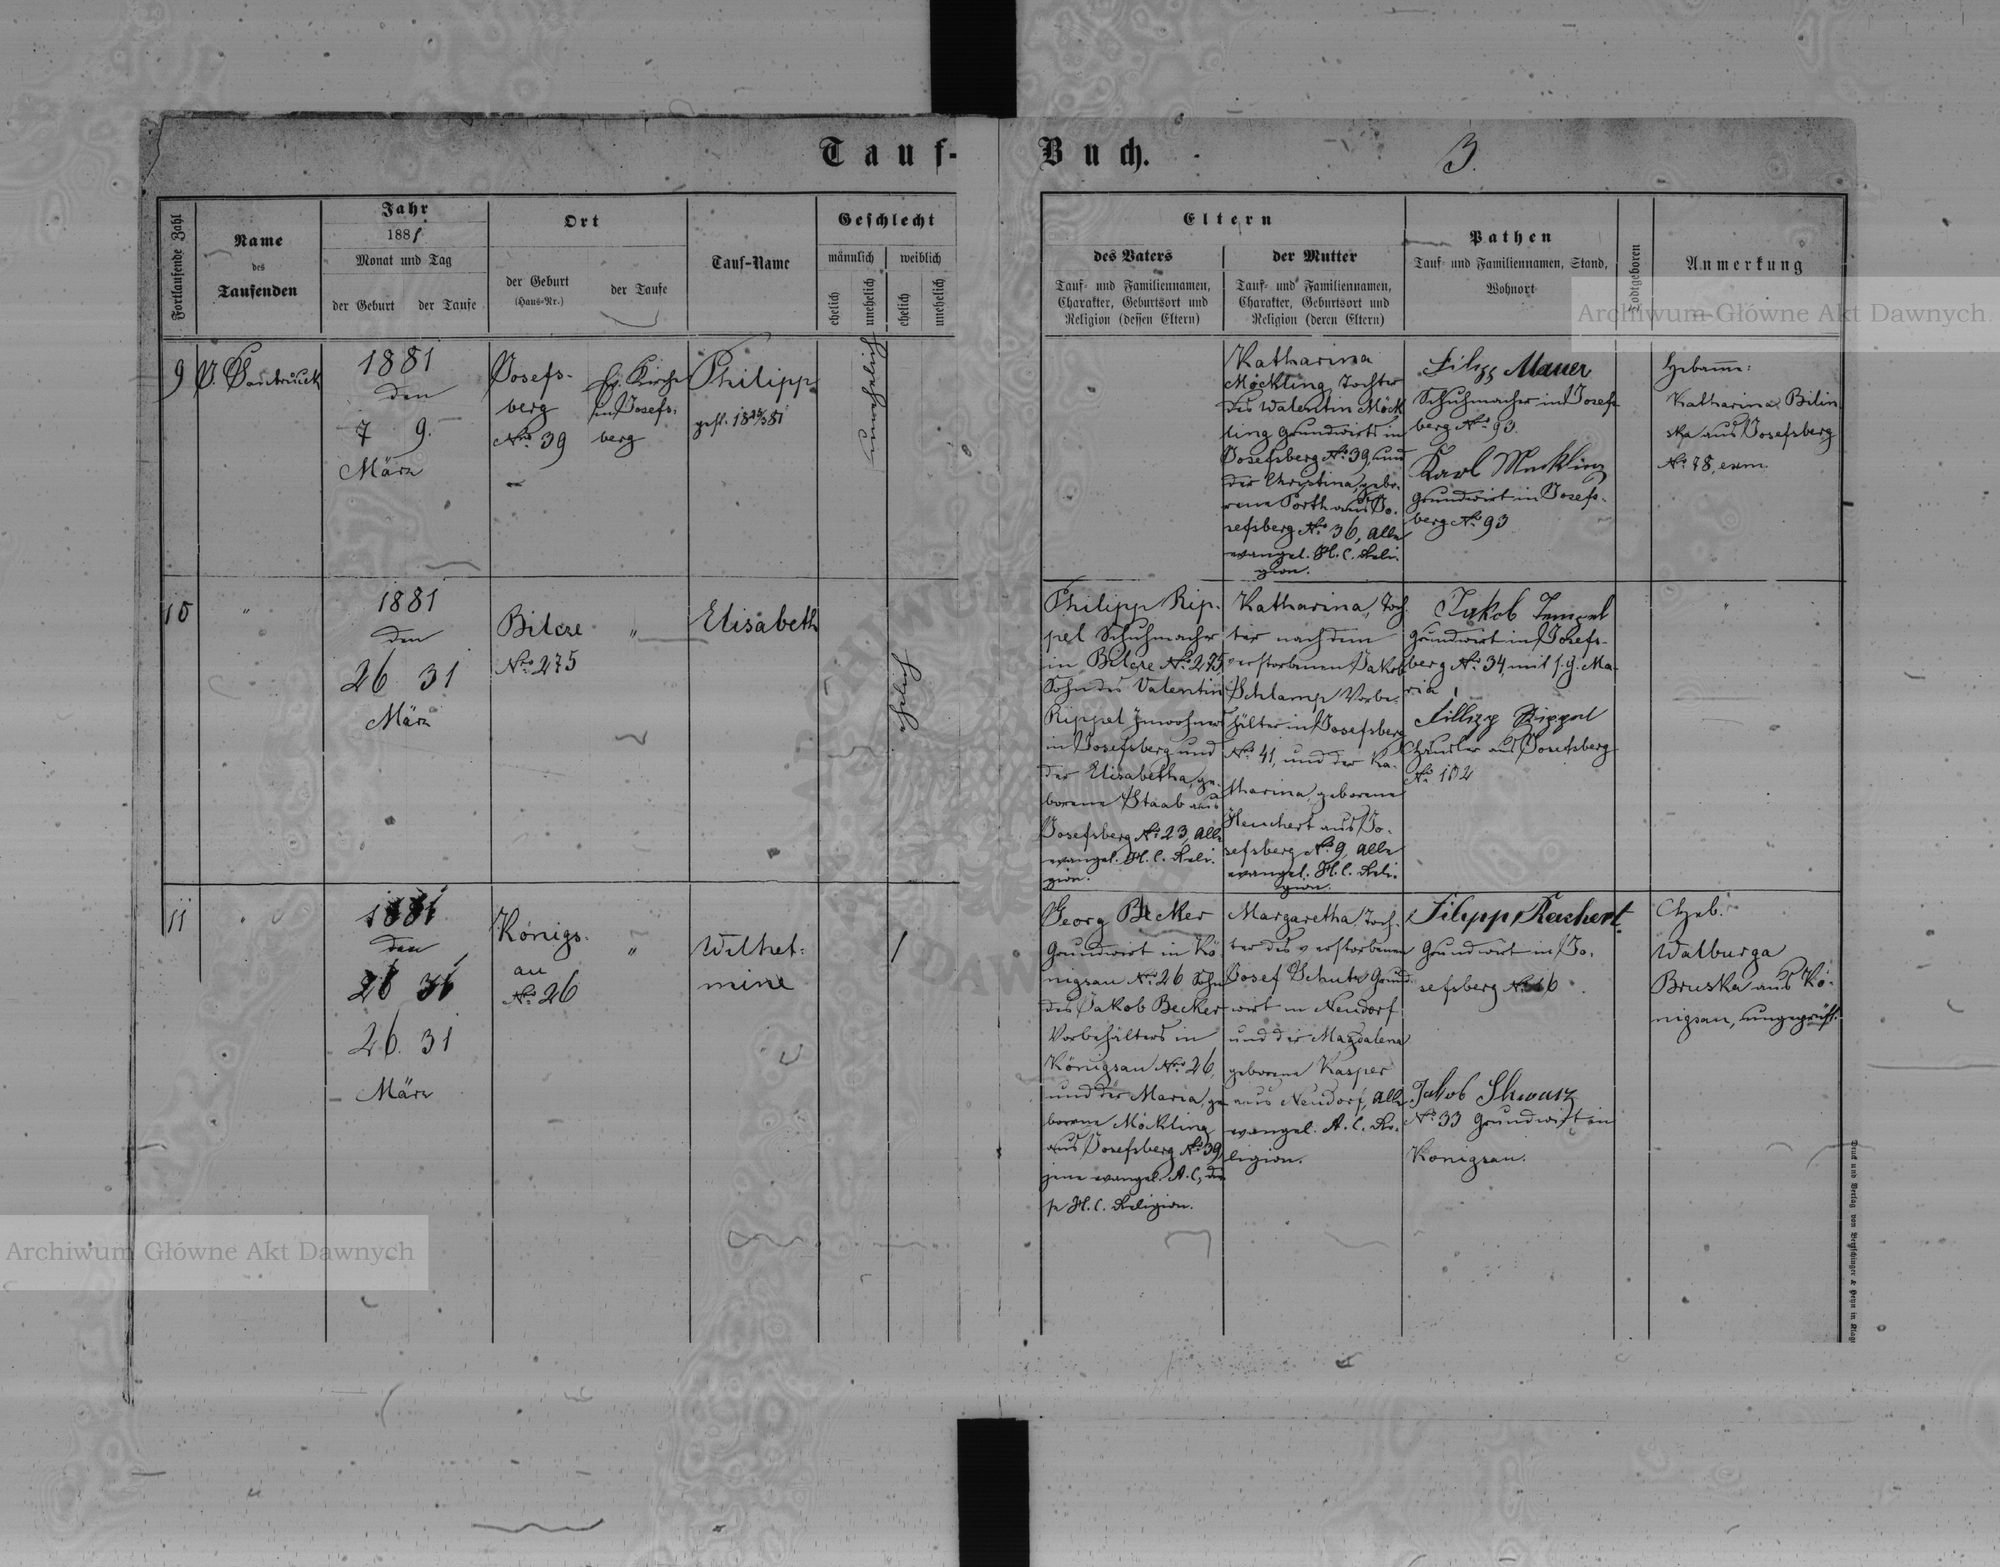 Tauf-Buch.
3.
Fortlaufende Zahl
Name
des
Taufenden
Jahr
1881
Monat und Tag
der Geburt
der Taufe
Ort
der Geburt
(Haus-Nr.)
der Taufe
Tauf-Name
Geschlecht
männlich
weiblich
ehelich
unehelich
ehelich
unehelich
Eltern
des Vaters
Tauf- und Familiennamen,
Charakter, Geburtsort und
Religion (dessen Eltern)
der Mutter
Tauf- und Familiennamen,
Charakter, Geburtsort und
Religion (deren Eltern)
Pathen
Tauf- und Familiennamen, Stand,
Wohnort
Todtgeboren
Anmerkung
9
1881
den
7 9.
März
Josefs-
berg
No 39
Ev. Kirche
in Josefs-
berg
Philipp
unehelich
Katharina
Möckling Tochter
des Valentin Möck
ling Grundwirts in
Josefsberg No 39, und
der Christina, gebo-
rene Porth aus Jo-
sefsberg No 36, alle
evangel. H. C. Reli-
gion.
Filipp Mauer
Schuhmacher in Josefs
berg No 93.
Karl Meckling
Grundwirt in Josefs-
berg No 93
Hebamme:
Katharina Bilin
ska aus Josefsberg
No 78, exam.
10
"
1881
den
26 31
März
Bilcze
No 275
"
Elisabeth
ehelich
Philipp Rip-
pel Schuhmacher
in Bilcze No 275
Sohn des Valentin
Rippel Inwohners
in Josefsberg und
der Elisabetha, ge-
borene Staab aus
Josefsberg No 23, alle
evangel. H. C. Reli-
gion.
Katharina, Toch
ter nach dem
verstorbenen Jakob
Schlamp Vorbe-
hälter in Josefsberg
No 41, und der Ka-
tharina, geborene
Heuchert aus Jo-
sefsberg No 9, alle
evangel. H. C. Reli-
gion.
Jakob Tempel
Grundwirt in Josefs-
berg No 34, mit s. G. Ma-
ria
Fillipp Rippel
Händler aus Josefsberg
No 102
"
11
"
1881
den
26 31
26. 31
März
Königs-
au
No 26
"
Wilhel-
mine
/
Georg Becker
Grundwirt in Kö-
nigsau No 26 Sohn
des Jakob Becker
Vorbehälters in
Königsau No 26,
und der Maria, ge
borene Möckling
aus Josefsberg No 39
jene evangel. A. C., die
se H. C. Religion.
Margaretha, Toch-
ter des verstorbenen
Josef Schutz Grund
wirt in Neudorf
und der Magdalena
geborene Kasper
aus Neudorf, alle
evangel. A. C. Re-
ligion.
Filipp Reichert
Grundwirt in Jo-
sefsberg No 16
Jakob Shwarz
No 33 Grundwirt in
Königsau.
Heb.
Walburga
Bruska aus Kö-
nigsau, ungeprüft.
Archiwum Główne Akt Dawnych
Archiwum Główne Akt Dawnych